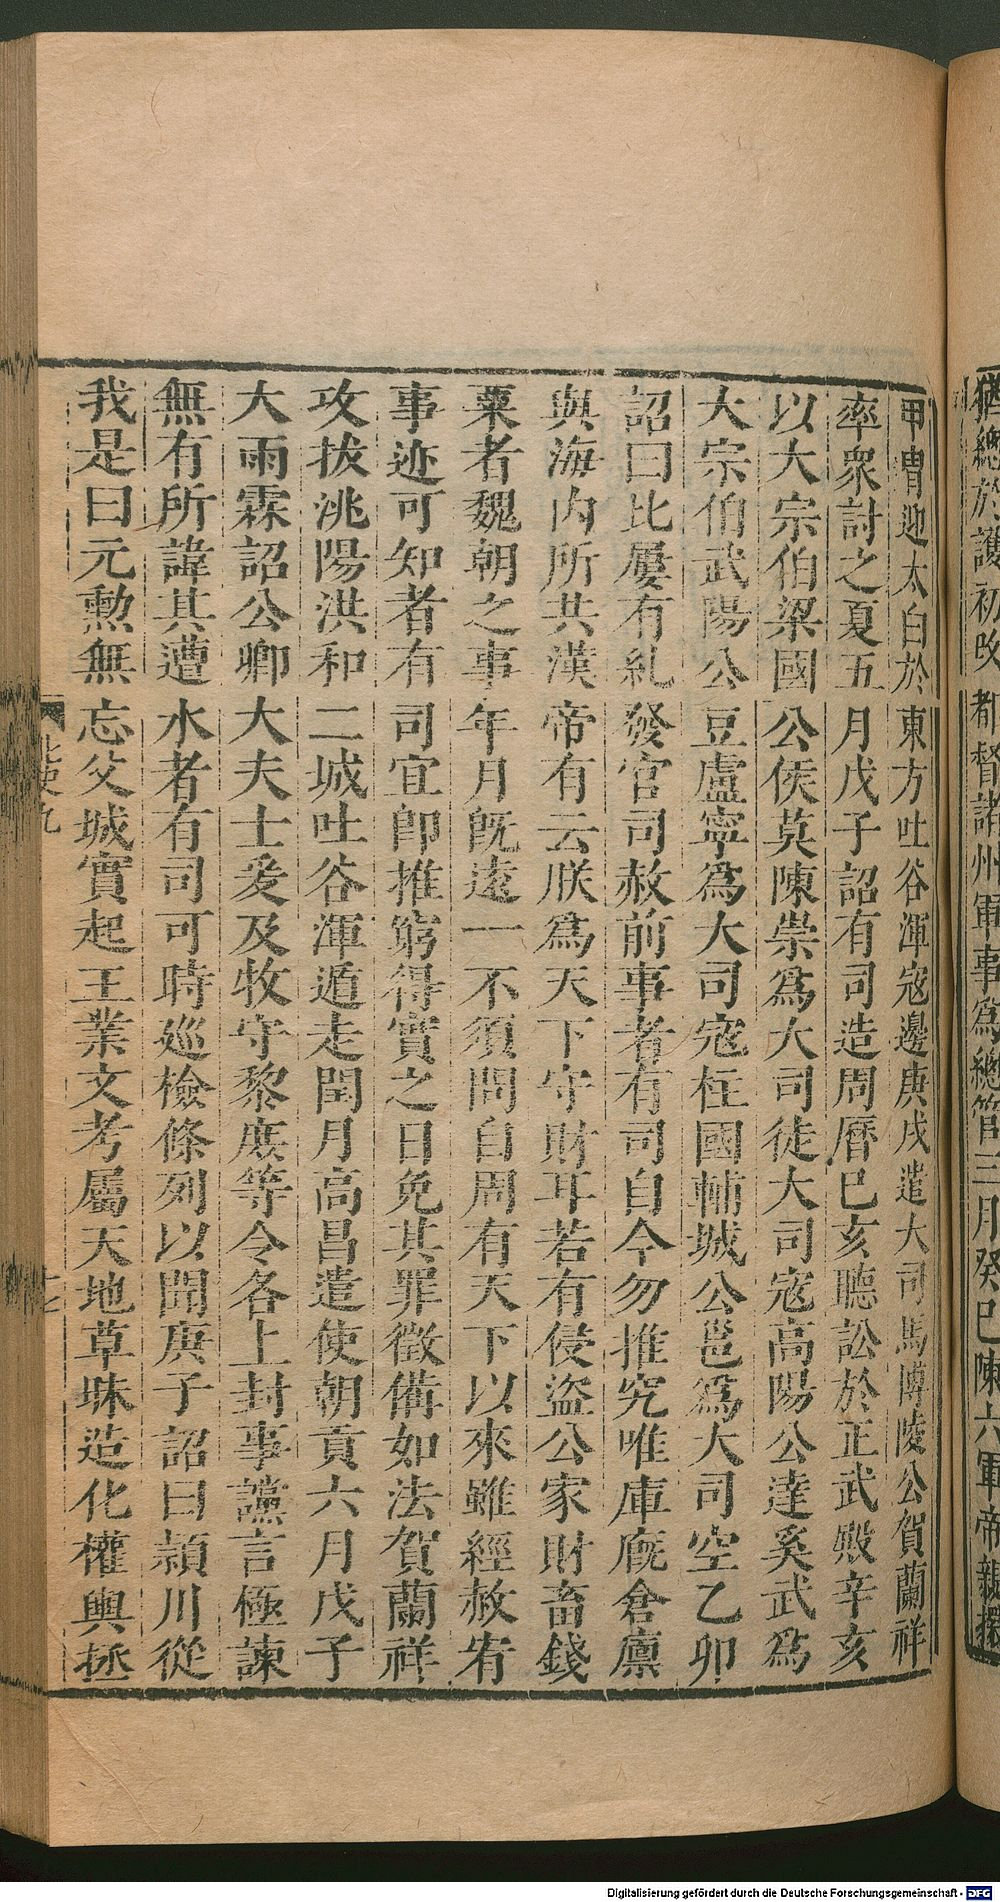 猶總於護初改都督諸州軍事爲總管三月癸巳陳六軍帝親擐
甲冑迎太白於東方吐谷渾寇邊庚戌遣大司馬博陵公賀蘭祥
率衆討之夏五月戊子詔有司造周曆巳亥聽訟於正武殿辛亥
以大宗伯梁國公侯莫陳崇爲大司徒大司寇高陽公達奚武爲
大宗伯武陽公豆盧寧爲大司寇柱國輔城公邕爲大司空乙卯
詔曰比屢有糺發官司赦前事者有司自今勿推究唯庫廐倉廪
與海内所共漢帝有云朕爲天下守財耳若有侵盜公家財畜錢
粟者魏朝之事年月既遠一不須問自周有天下以來雖經赦宥
事迹可知者有司宜卽推窮得實之日免其罪徵備如法賀蘭祥
攻拔洮陽洪和二城吐谷渾遁走閏月高昌遣使朝貢六月戊子
大雨霖詔公卿大夫士爰及牧守黎庶等令各上封事讜言極諫
無有所諱其遭水者有司可時巡檢條列以聞庚子詔曰潁川從
我是曰元勲無忘父城實起王業文考屬天地草昧造化權輿拯
北史九
Digitalisierung gefördert durch die Deutsche Forschungsgemeinschaft - DFG